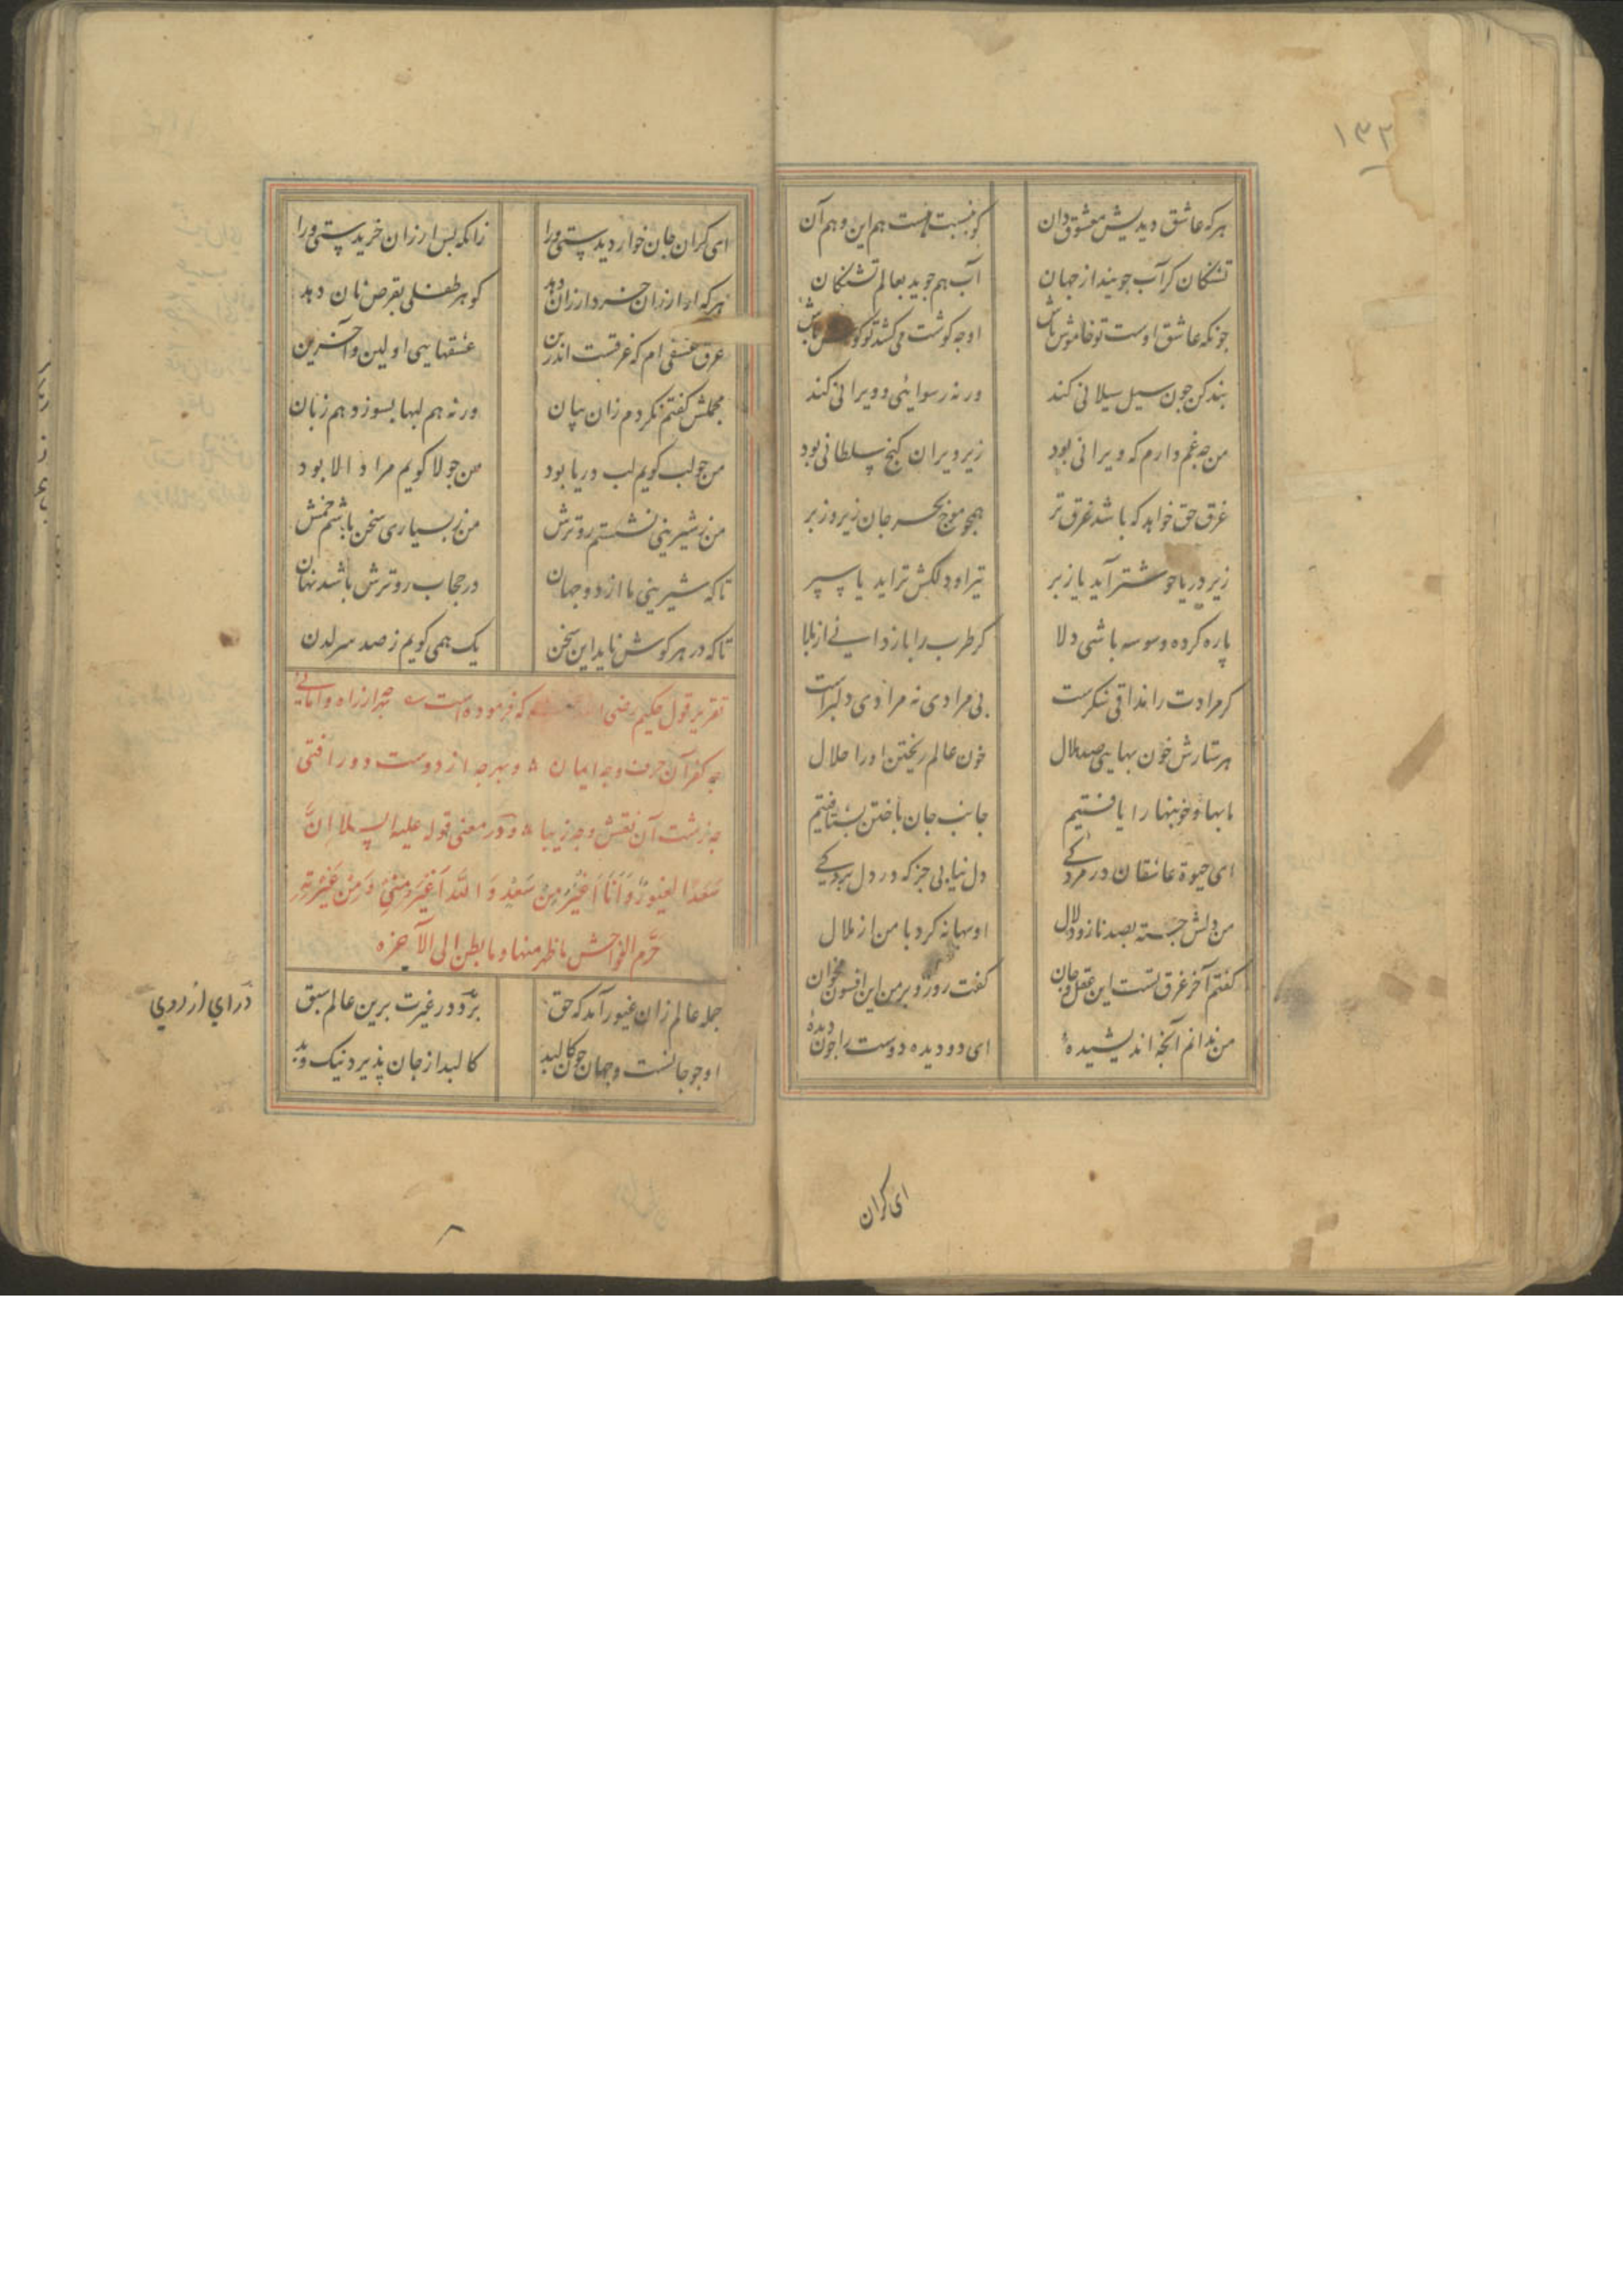 ۱۳۲
هرکه عاشق دیدیش معشوق دان کو بنسبت هست هم این و هم آن
تشنکان کر آب جویند از جهان آب هم جوید بعالم تشنکان
چونکه عاشق اوست تو خاموش باش او چه کوشت می کشد تو کوش باش
بند کن چون سیل سیلانی کند ورنه رسوایی و ویرانی کند
من چه غم دارم که ویرانی بود زیر ویران کنج سلطانی بود
غرق حق خواهد که باشد غرق تر همچو موج بحر جان زیر و زبر
زیر دریا خوشتر آید یا زبر تیر او دلکش تر آید یا سپر
پاره کرده وسوسه باشی دلا کر طرب را باز دانی از بلا
کر مرادت را مذاق شکرست بی مرادی نه مرادی دلبرست
هر ستارش خون بهای صد هلال خون عالم ریختن او را حلال
ما بها و خونبها را یافتیم جانب جان باختن بشتافتیم
ای حیوة عاشقان در مردکی دل نیابی جز که در دل بردکی
من دلش جسته بصد ناز و دلال او بهانه کرد با من از ملال
کفتم آخر غرق تست این عقل و جان کفت رو رو بر من این افسون مخوان
من ندانم آنچه اندیشیدهٔ ای دو دیده دوست را چون دیدهٔ
ای کران
ای کران جان خوار دیدستی ورا زانکه بس ارزان خریدستی ورا
هرکه او ارزان خرد ارزان دهد کوهر طفلی بقرص نان دهد
غرق عشقی ام که غرقست اندرین عشقهای اولین و آخرین
مجملش کفتم نکردم زان بیان ورنه هم لبها بسوزد هم زبان
من چو لب کویم لب دریا بود من چو لا کویم مراد الا بود
من ز شیرینی نشستم رو ترش من ز بسیاری سخن باشم خمش
تا که شیرینی ما از دو جهان در حجاب رو ترش باشد نهان
تا که در هر کوش ناید این سخن یک همی کویم ز صد سر لدن
تقریر قول حکیم رضی که فرموده است بهرچ از راه وامانی
چه کفر آن حرف و چه ایمان ٥ و بهرچه از دوست دور افتی
چه زشت آن نقش و چه زیبا ٥ و در معنی قوله علیه السلام ان
سَعْدًا لغیورٌ وَ اَنَا اَغْیَرُ مِنْ سَعْدٍ وَ اللّٰه اَغْیَرُ مِنّی وَ مِنْ غَیْرَتِهِ
حَرَّم الفواحش ما ظهر منها و ما بطن الی الآخره
جمله عالم زان غیور آمد که حق برد در غیرت برین عالم سبق
او چو جانست و جهان چون کالبد کالبد از جان پذیرد نیک و بد